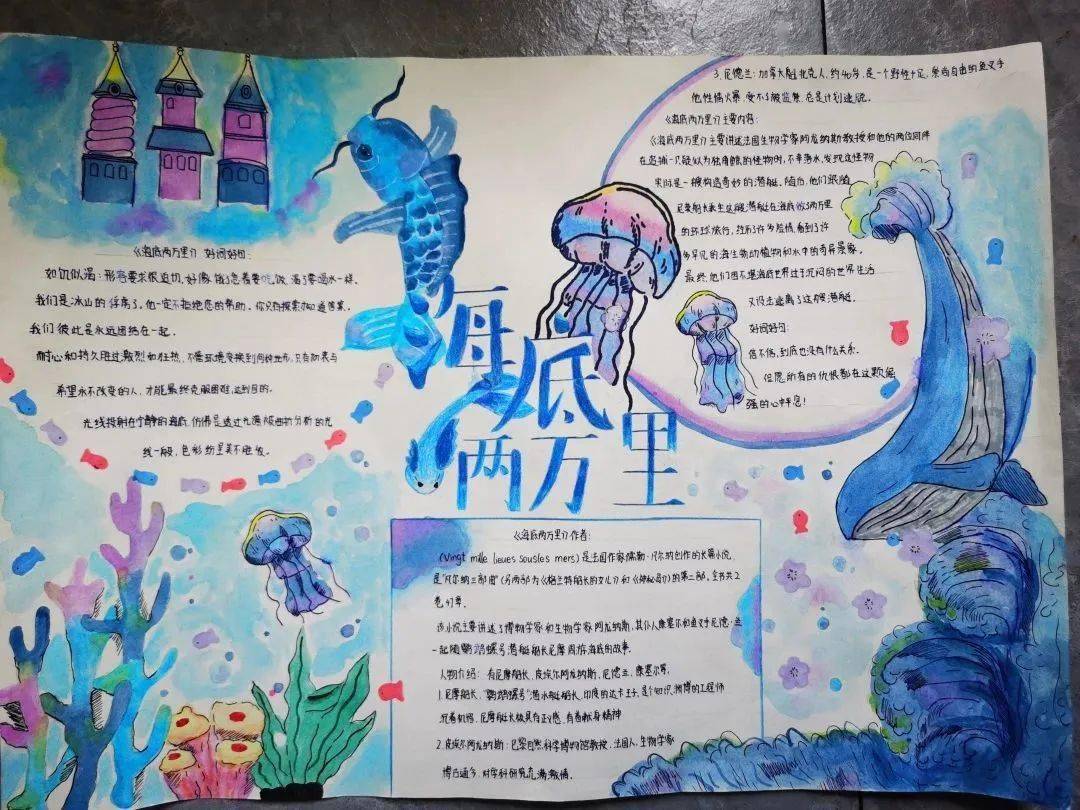 《海底两万里》好词好句:
如饥似渴:形容要求很迫切,好像饿了急着要吃饭,渴了要喝水一样。
我们是冰山的俘虏了,他一定不拒绝您的帮助。你只的探索知道答案。
我们彼此是永远团结在一起。
耐心和持久胜过激烈和狂热,不管环境变换到何种地步,只有初衷与
希望永不改变的人,才能最终克服困难,达到目的。
光线投射在个静的海底,仿佛是透过九棱镜曲折分析的光
线一般,色彩纷呈美不胜收。
海底
两万里
3.尼德兰:加拿大魁北克人,约40岁,是一个野性十足,崇尚自由的鱼叉手
他性情火暴,受不了被监禁,总是计划逃脱。
《海底两万里》主要内容:
《海底两万里》主要讲述法国生物学家阿龙纳斯教授和他的两位同伴
在追捕一只疑似为独角鲸的怪物时,不幸落水,发现这怪物
实际是一艘构造奇妙的潜艇。随后,他们跟随
尼莫船长乘坐这艘潜艇在海底做了两万里
的环球旅行,经历了许多险情,看到了许
多罕见的海生物动植物和水中的奇异景象。
最终,他们因不堪海底世界过于沉闷的世界生活
又设法逃离了这艘潜艇。
好词好句:
信不信,到底也没有什么关系。
但愿所有的仇恨都在这颗倔
强的心中平息!
《海底两万里》作者:
(Vingt mille lieues sousles mers)是法国作家儒勒·凡尔纳创作的长篇小说,
是“凡尔纳三部曲”(另两部为《格兰特船长的女儿》和《神秘岛》)的第二部。全书共2
卷47章。
该小说主要讲述了博物学家和生物学家阿龙纳斯,其仆人康塞尔和鱼叉手尼德·兰
一起随鹦鹉螺号潜艇船长尼摩周游海底的故事。
人物介绍:有尼摩船长,皮埃尔阿龙纳斯,尼德兰,康塞尔等。
1.尼摩船长,“鹦鹉螺号”潜水艇船长,印度的达卡王子,是个知识渊博的工程师
沉着机智,尼摩船长极具有正义感,有着献身精神
2.皮埃尔阿龙纳斯:巴黎自然科学博物馆教授,法国人,生物学家
博古通今,对学科研究充满激情。